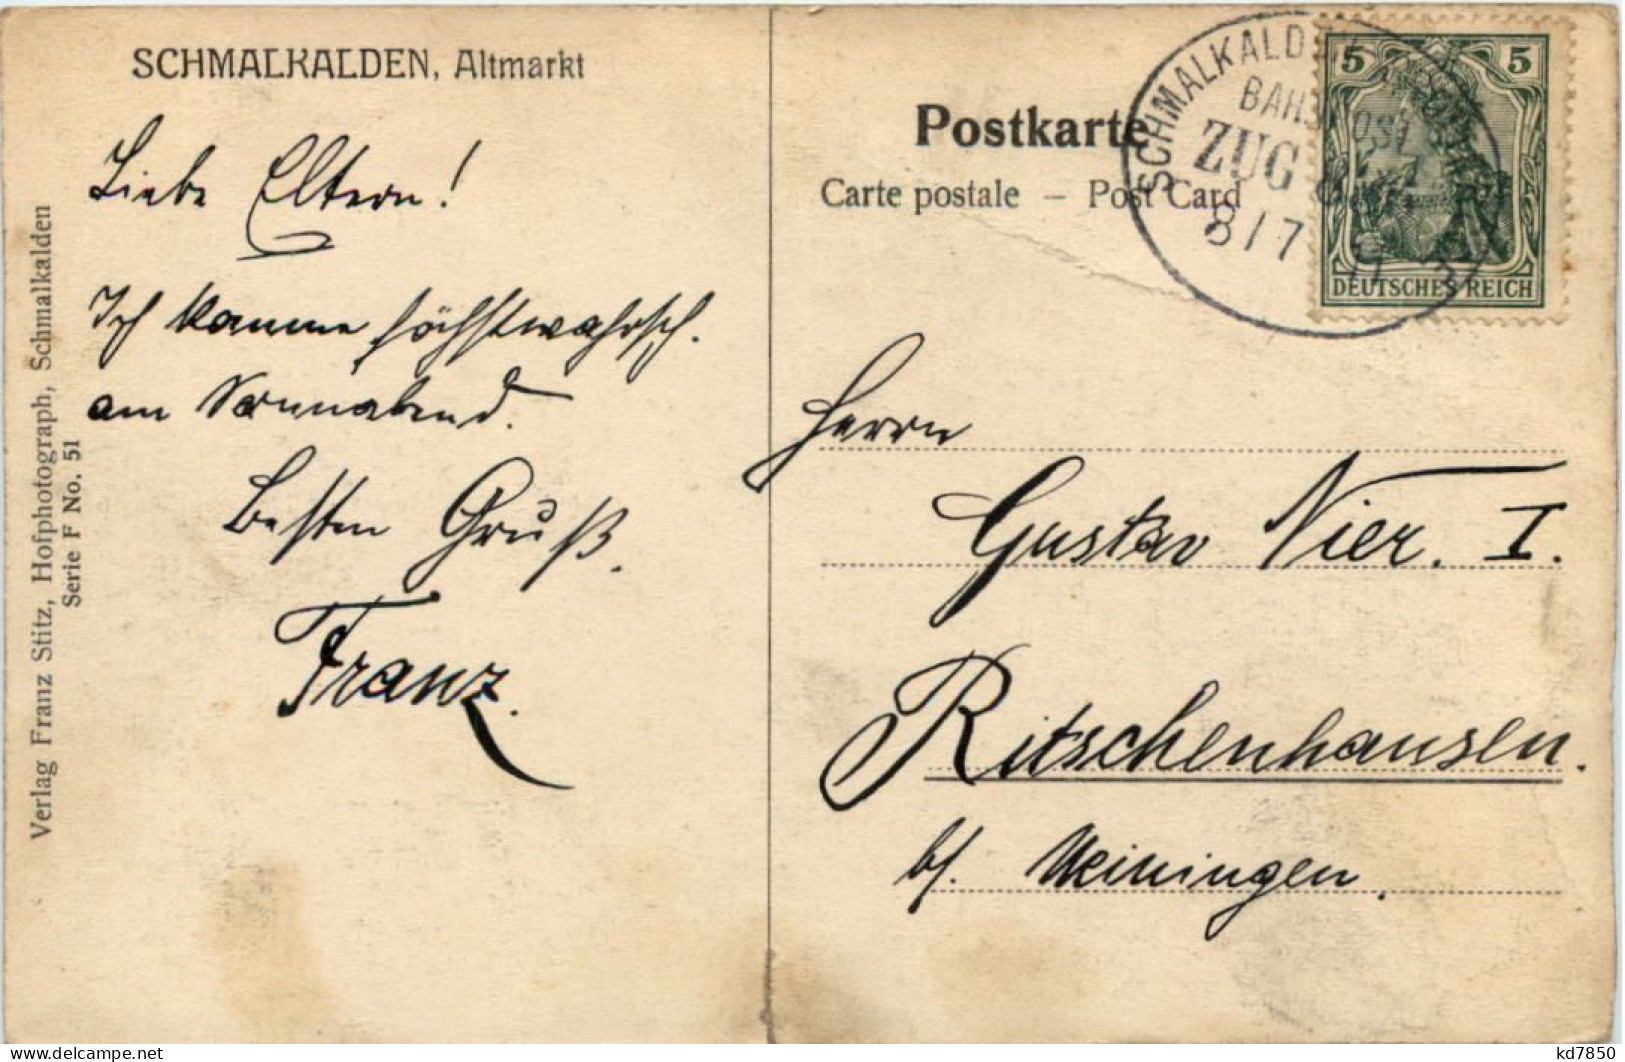 SCHMALKALDEN, Altmarkt
Liebe Eltern!
Ich komme höchstwahrsch.
am Sonnabend.
Besten Gruß.
Franz.
Verlag Franz Stitz, Hofphotograph, Schmalkalden
Serie F No. 51
Postkarte
Carte postale – Post Card
SCHMALKALD
BAHNPOST
ZUG
8/7
5 5
DEUTSCHES REICH
Herrn
Gustav Nier. I.
Ritschenhausen.
b/. Meiningen.
kd7850